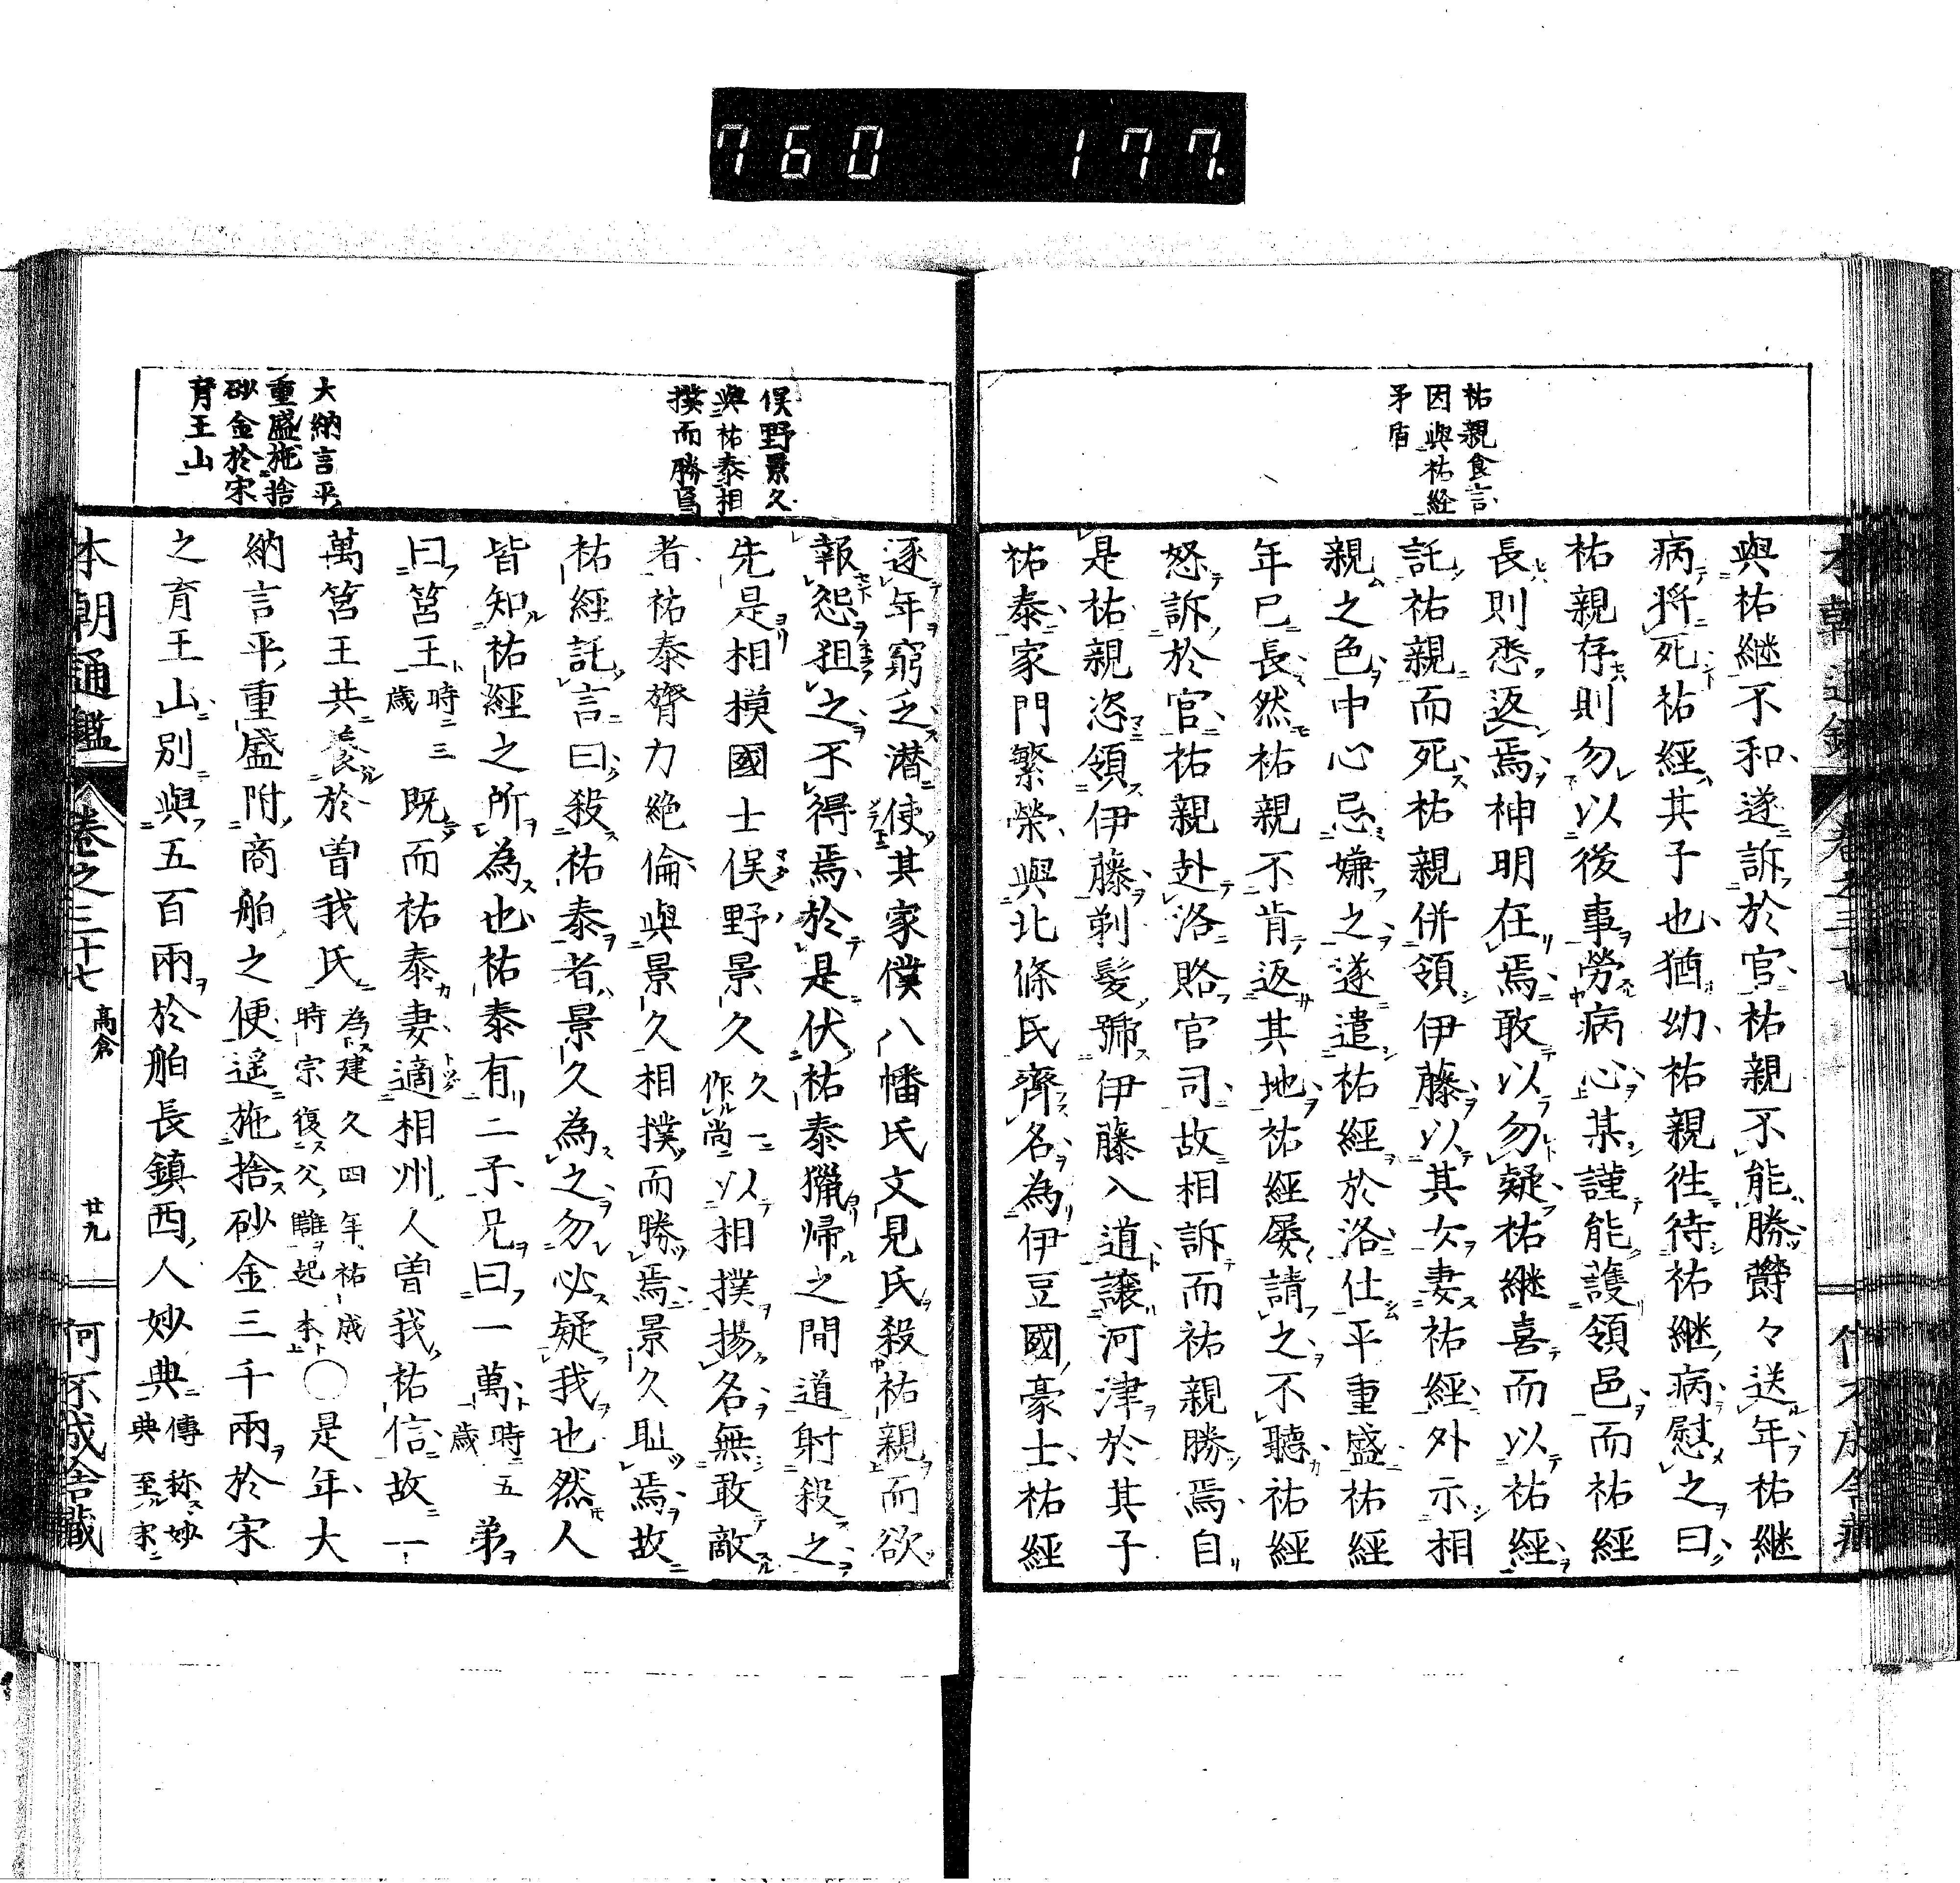 760 177
祐親食言
因與祐経
矛盾
與祐継不和遂訴於官祐親不能勝欝々送年祐継
病将死祐經其子也猶幼祐親往待祐継病慰之曰
祐親存則勿以後事勞病心某謹能護領邑而祐經
長則悉返焉神明在焉敢以勿疑祐継喜而以祐經
託祐親而死祐親併領伊藤以其女妻祐經外示相
親之色中心忌嫌之遂遣祐經於洛仕平重盛祐經
年已長然祐親不肯返其地祐經屡請之不聽祐經
怒訴於官祐親赴洛賂官司故相訴而祐親勝焉自
是祐親恣領伊藤剃髪號伊藤入道讓河津於其子
祐泰家門繁榮與北條氏齊名為伊豆國豪士祐經
俣野景久
與祐泰相
撲而勝焉
大納言平
重盛施捨
砂金於宋
育王山
逐年窮乏潜使其家僕八幡氏文見氏殺祐親而欲
報怨狙之不得焉於是伏祐泰獵帰之間道射殺之
先是相模國士俣野景久久一作尚以相撲揚名無敢敵
者祐泰膂力絶倫與景久相撲而勝焉景久恥焉故
祐經託言曰殺祐泰者景久為之勿必疑我也然人
皆知祐經之所為也祐泰有二子兄曰一萬時五歳弟
曰筥王時三歳既而祐泰妻適相州人曽我祐信故一
萬筥王共養於曽我氏為建久四年祐成時宗復父讎起本○是年大
納言平重盛附商舶之便遥施捨砂金三千兩於宋
之育王山別與五百兩於舶長鎮西人妙典傳称妙典至宋
本朝通鑑 卷之三十七 高倉 廿九 何不成舎蔵